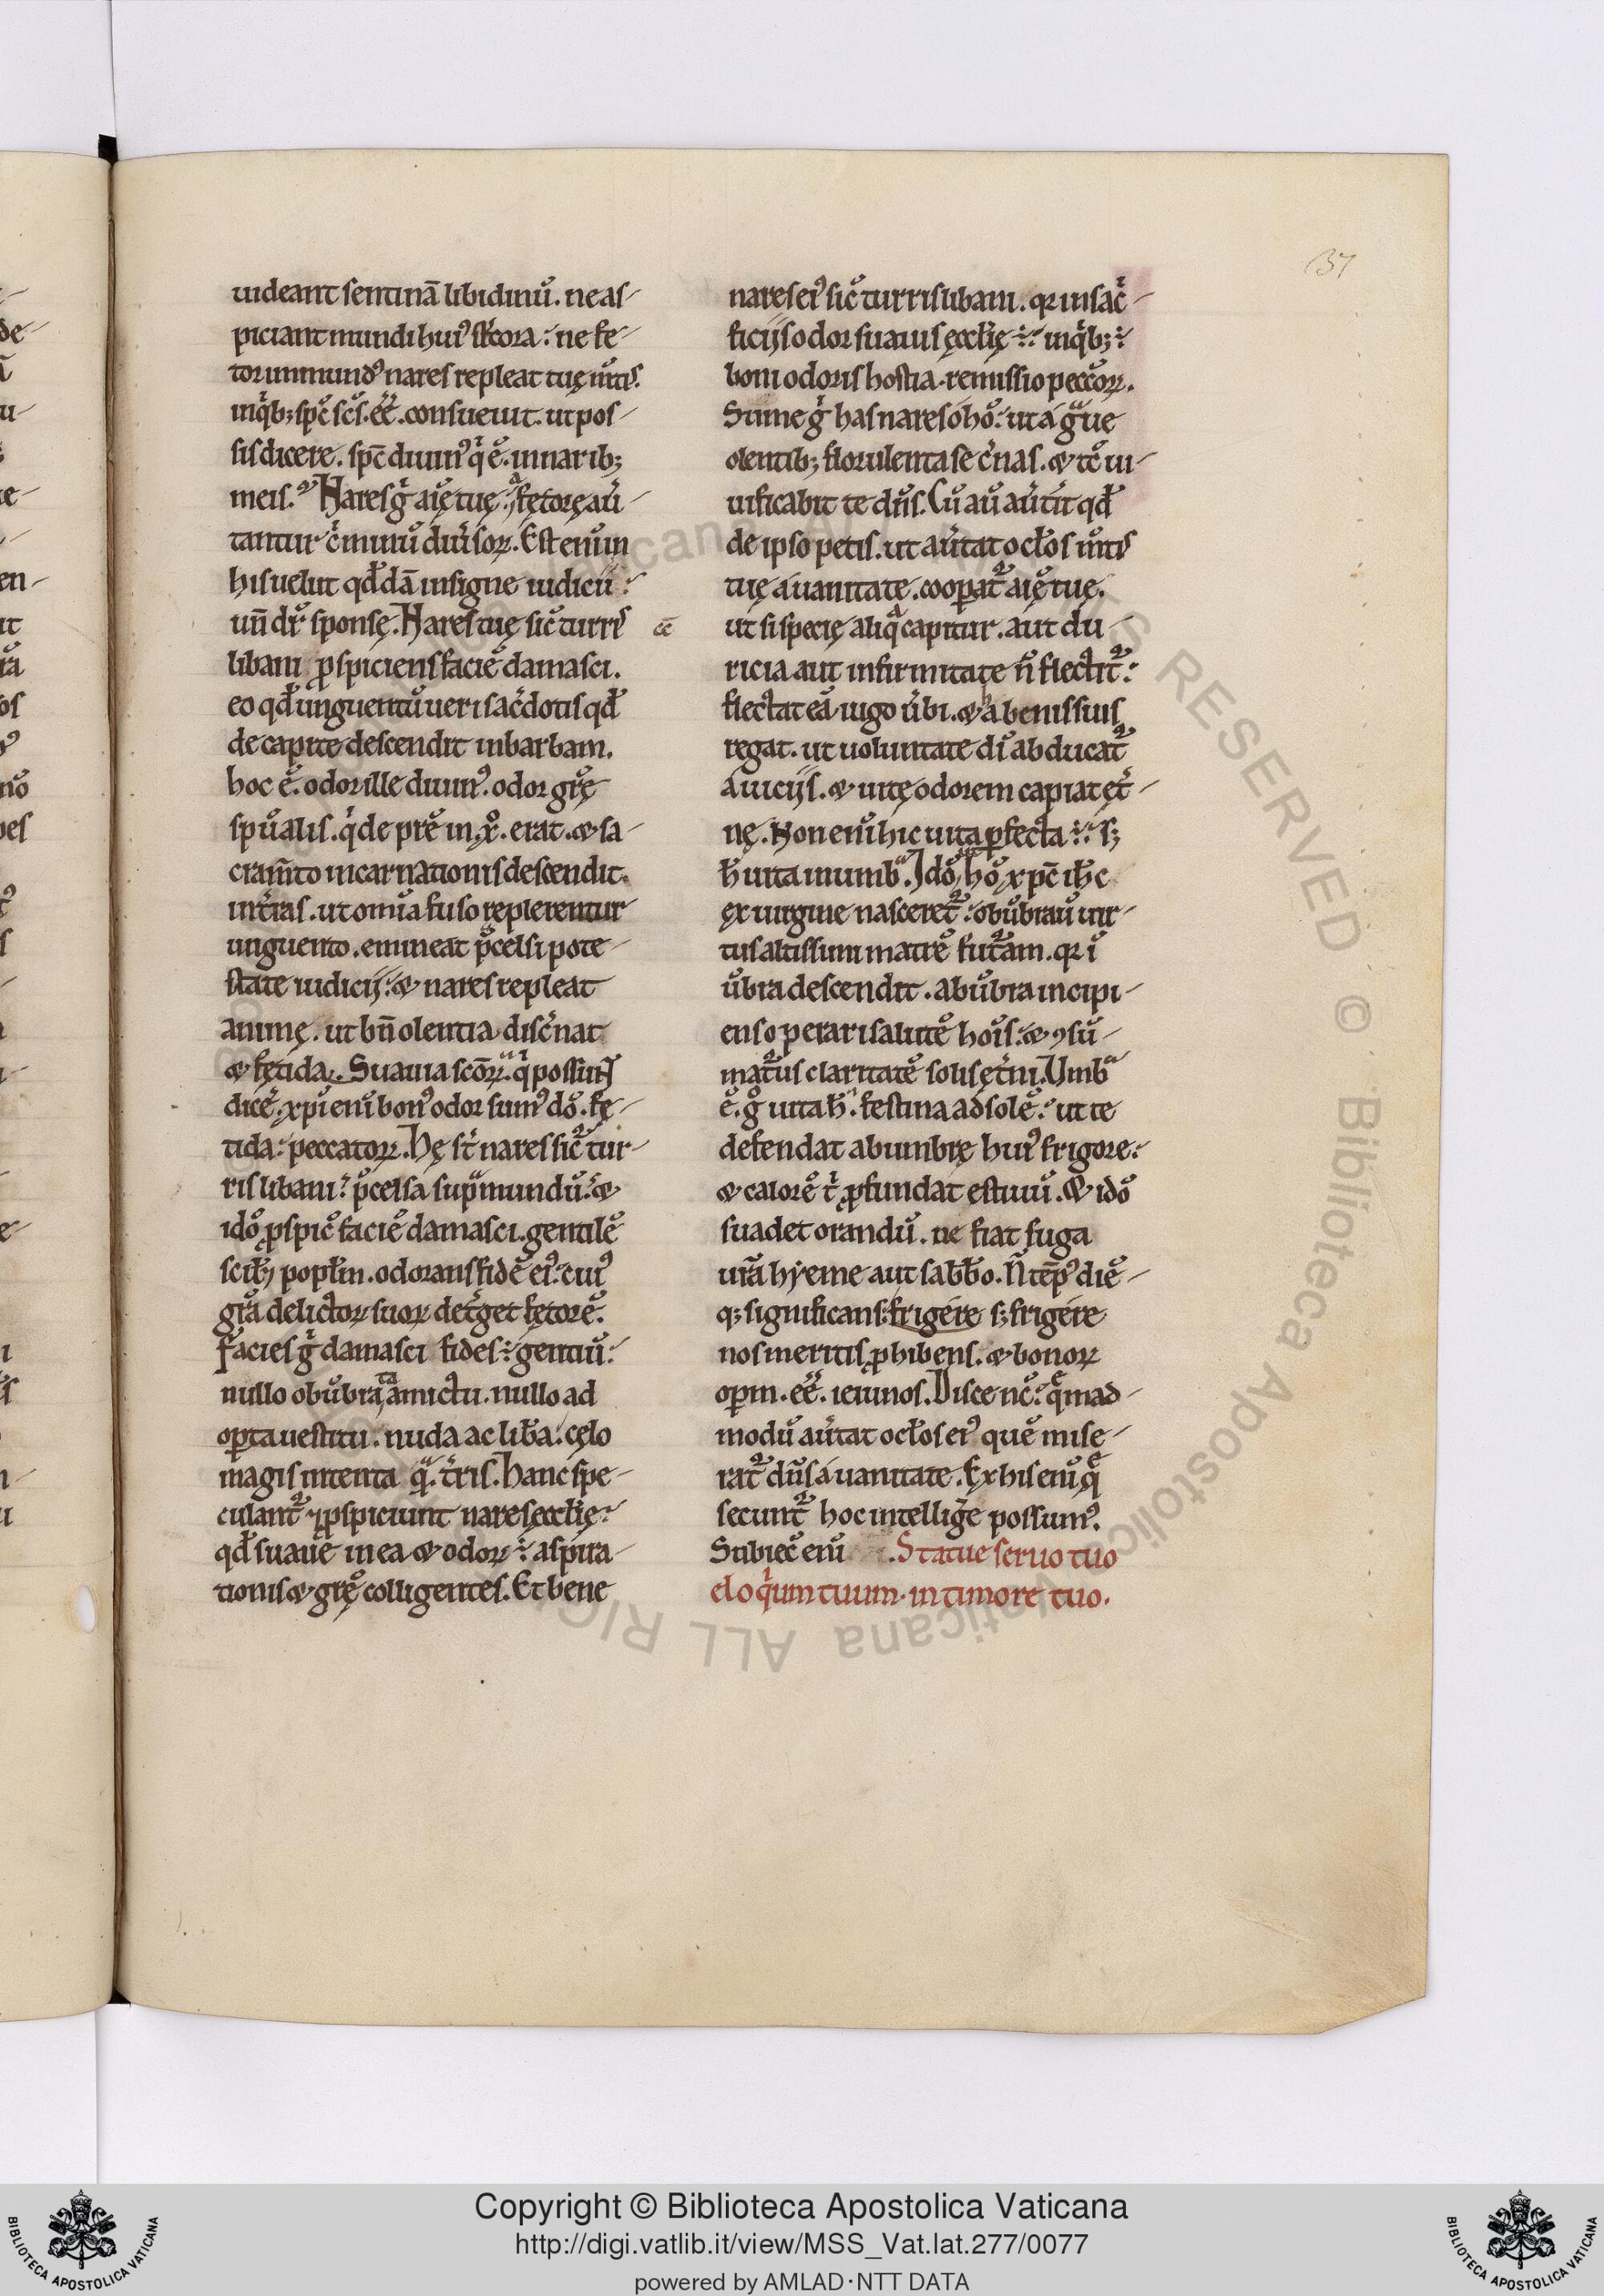 37
uideant sentinā libidinū. ne as-
piciant mundi hui᾽ stercora: ne fe-
tor inmund᾽ nares repleat tuę m̄tis.
inqͥb; sp̄c sc̄s. eē. consueuit. ut pos-
sis dicere. sp̄c diuin᾽ qͥ ē. in narib;
meis. Nares gͦ aīę tuę. fętore au-
tantur c̓minū diuisoꝝ. Est enim
his uelut qd̄dā insigne iudiciū:
un̄ dr̄ sponsę. Nares tuę sic̄ turris
libani ꝓspiciens faciē damasci.
eo qd̄ unguentū ueri sac̓dotis qd̄
de capite descendit in barbam.
hoc ē. odor ille diuin᾽. odor gr̄ę
sp̄ualis. qͥ de pr̄e in xp̄o. erat. & sa-
cram̄to incarnationis descendit.
in t̓ras. ut omīa fuso replerentur
unguento. emineat p̄celsi pote-
state iudicij: & nares repleat
animę. ut bn̄ olentia disc̓nat
& fętida. Suauia sc̄oꝝ. qͥ possunt
dicē. xp̄i enī bon᾽ odor sum᾽ dō. fę-
tida: peccatoꝝ. Hę st̄ nares sic̄ tur-
ris libani: p̄celsa supͣ mundū: &
idō ꝓspic̄ faciē damasci. gentilē
scił; popłm. odorans fidē ei᾽. cui᾽
gr̄a delictoꝝ suoꝝ det̓get fętorē.
facies gͦ damasci fides: gentiū:
nullo obūbrata amictu. nullo ad
op̱ta uestitu. nuda ac lib̓a. cęlo
magis intenta qͣ. t̓ris. Hanc spe-
culant᾽ & ꝓspiciunt nares ęccłię:
qd̄ suaue in ea & odoꝝ: aspira-
tionis & gr̄ę colligentes. Et bene
cē
nares ei᾽ sic̄ turris libani. qꝛ in sac̓-
ficijs odor suauis ęccłię: inqͥb;:
boni odoris hostia. remissio peccōꝝ.
Sume gͦ has nares o hō: ut a gͣue
olentib; florulenta sec̓nas. & tc̄ ui-
uificabit te dn̄s. Cū aū au̓tit qd̄
de ipso petis. ut au̓tat ocłos m̄tis
tuę a uanitate. coop̱at᾽ aīę tuę.
ut si specię aliqͣ capitur. aut du-
ricia aut infirmitate n̄ flectit᾽:
flectat eā iugo ūbi. & abenis suis
regat. ut uoluntate dī abducat᾽
a uicijs. & uitę odorem capiat ęt̓-
nę. Non enī hic uita ꝑfecta: s;
h̄ uita in umbͣ. Idō hō xp̄c ih̄c
ex uirgine nasceret᾽: obūbrau̓ uir-
tus altissimi matrē fut᾽am. qꝛ ī
ūbra descendit. ab ūbra incipi-
ens operari salutē hoīs: & ꝯsū-
mat᾽us claritatē solis ęt̓ni. Umbͣ
ē. gͦ uita h̄. festina ad solē: ut te
defendat ab umbrę hui᾽ frigore:
& calorē t̓ ꝓfundat estiuū. & idō
suadet orandū. ne fiat fuga
ur̄a hẏeme aut sabb̄o. N̄ tēp᾽ diē-
q; significans: frigere s; frigere
nos meritis ꝓhibens. & bonoꝝ
op̱m. eē. ieiunos. Disce nc̄: qͤmad-
modū au̓tat ocłos ei᾽ quē mise-
rat᾽ dn̄s a uanitate. Ex his enī qͤ
secunt᾽ hoc intellig̓e possum᾽.
Subiec̄ enī. Statue seruo tuo
eloqͥum tuum. in timore tuo.
Copyright © Biblioteca Apostolica Vaticana
http://digi.vatlib.it/view/MSS_Vat.lat.277/0077
powered by AMLAD·NTT DATA